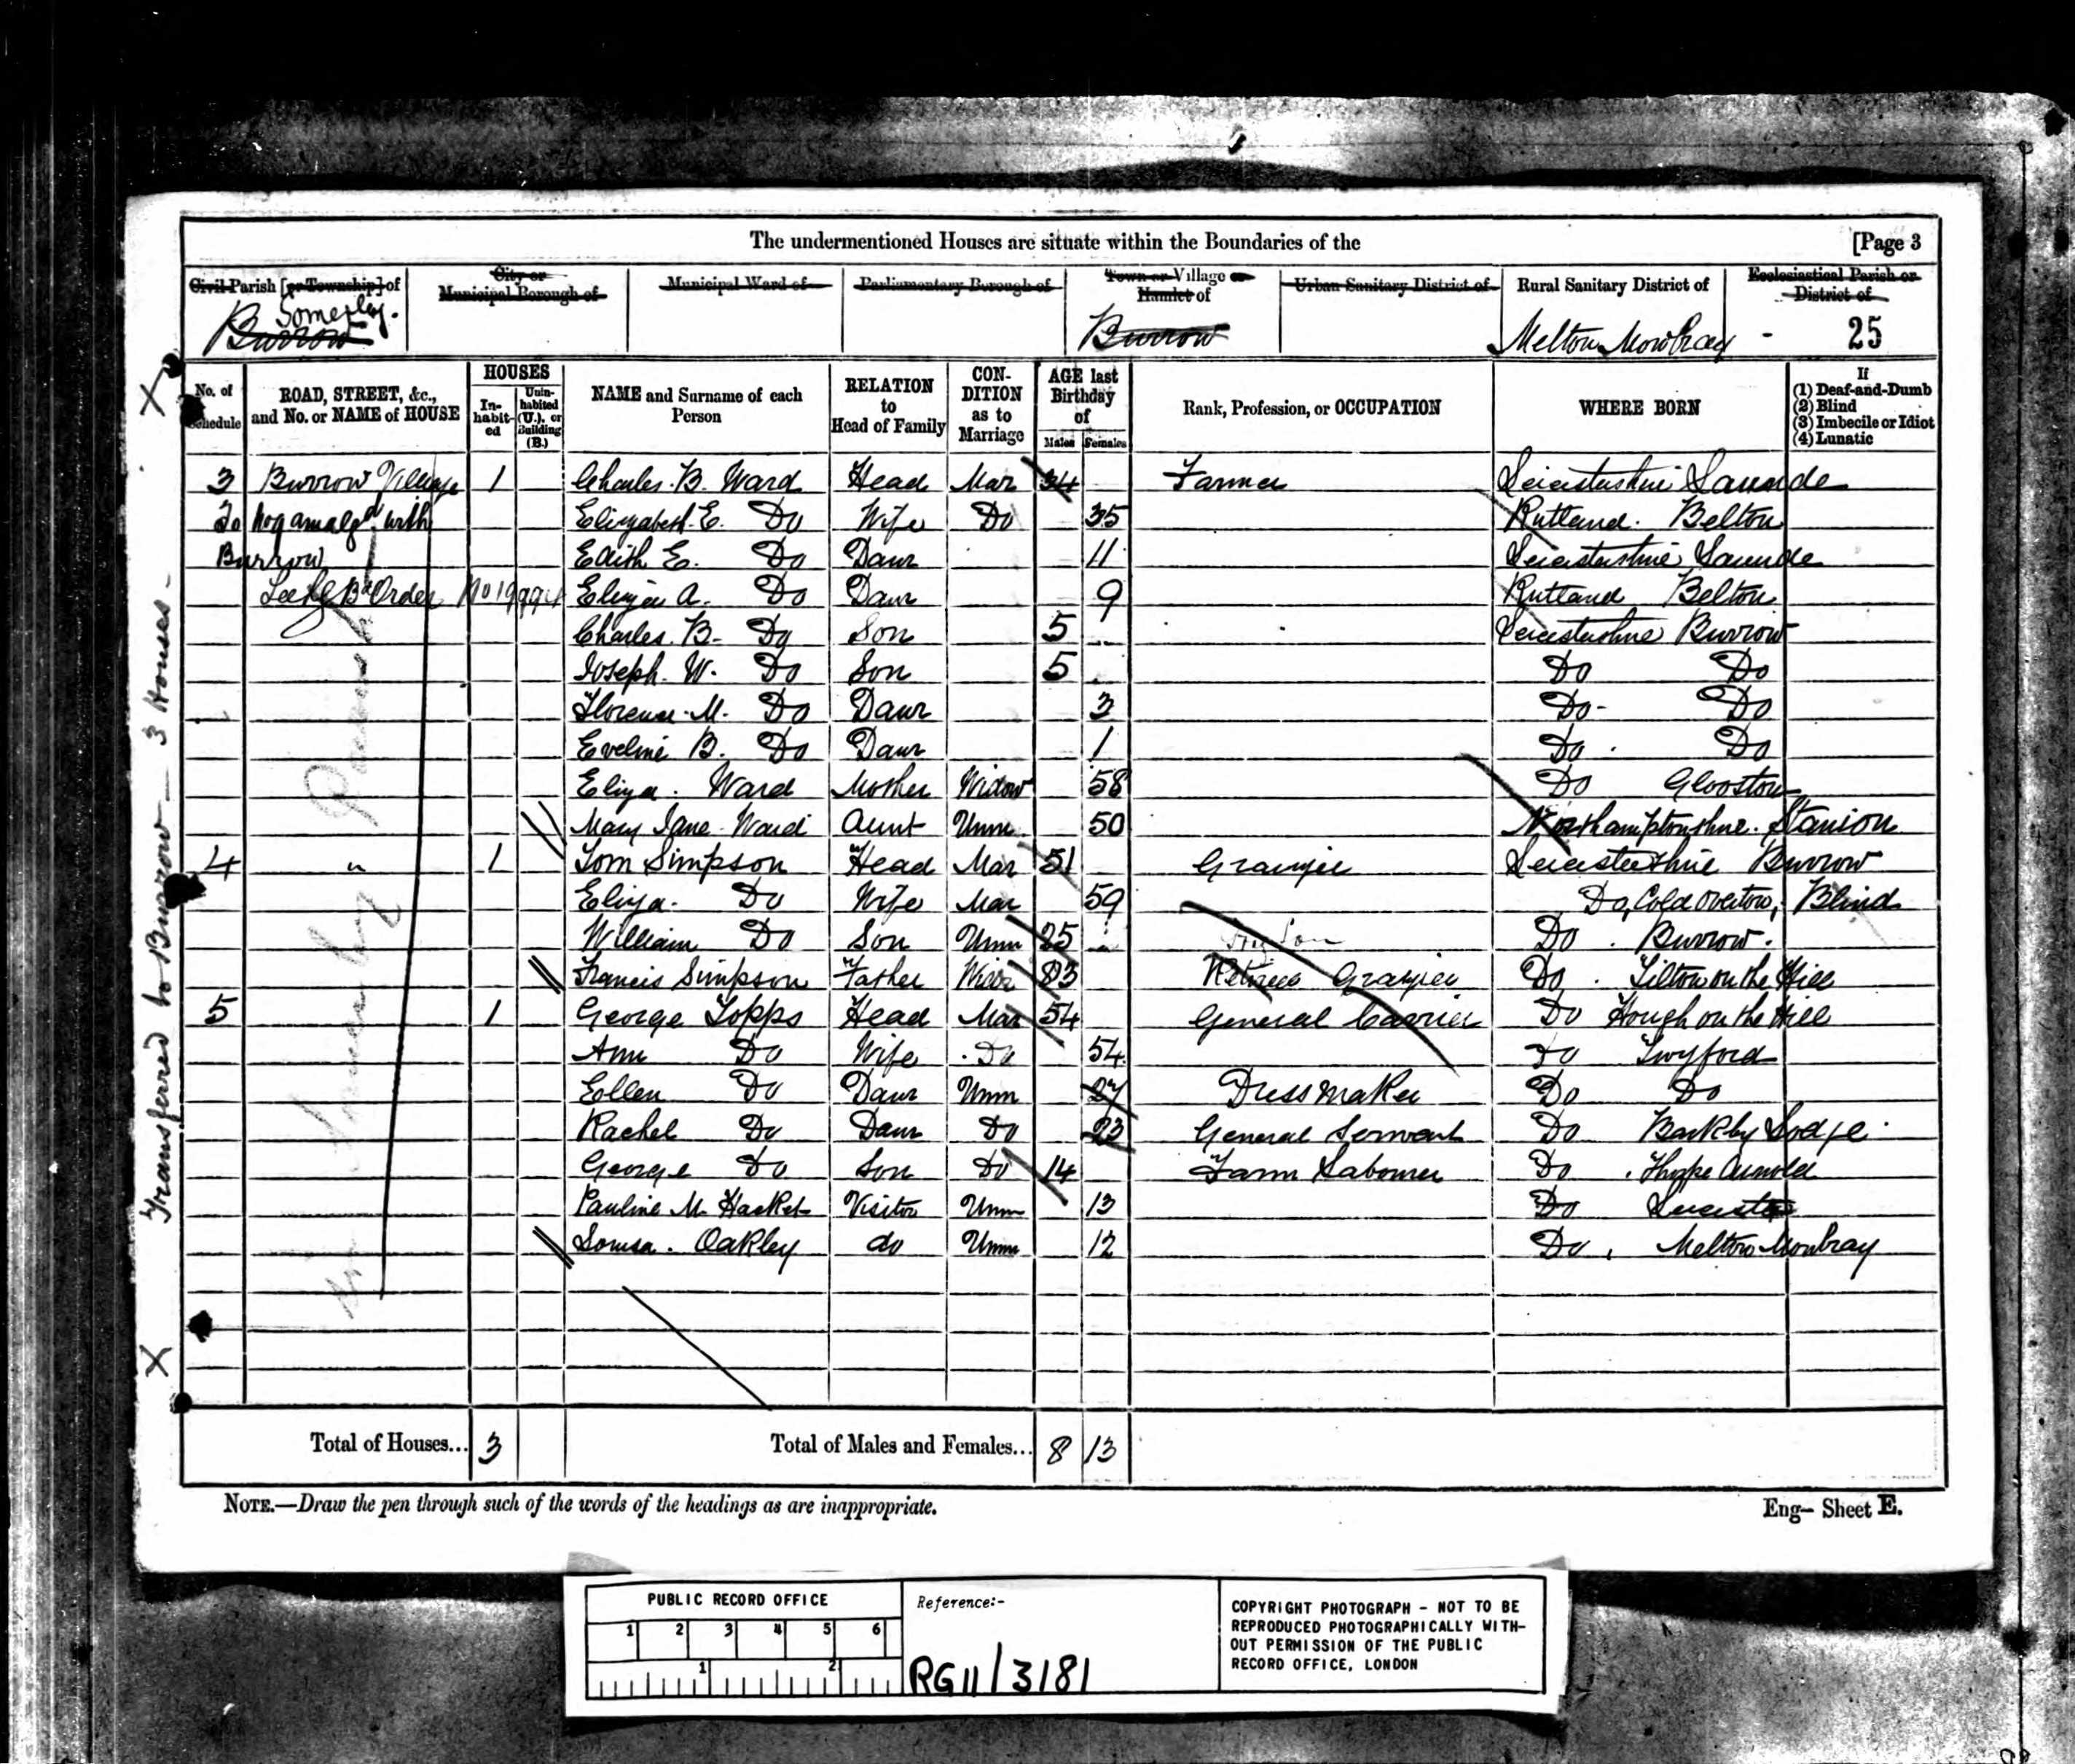 The undermentioned Houses are situate within the Boundaries of the [Page 3
Civil Parish [or Township] of
City or Municipal Borough of
Municipal Ward of
Parliamentary Borough of
Town or Village or Hamlet of
Urban Sanitary District of
Rural Sanitary District of
Ecclesiastical Parish or District of
Somerby.
Burrow Burrow Melton Mowbray - 25
No. of Schedule
ROAD, STREET, &c., and No. or NAME of HOUSE
HOUSES
In-habit-ed
Unin-habited (U.), or Building (B.)
NAME and Surname of each Person
RELATION to Head of Family
CON-DITION as to Marriage
AGE last Birthday of
Males Females
Rank, Profession, or OCCUPATION
WHERE BORN
If
(1) Deaf-and-Dumb
(2) Blind
(3) Imbecile or Idiot
(4) Lunatic
3 Burrow Village 1 Charles. B. Ward Head Mar 34 Farmer Leicestershire Saunde
with Elizabeth. E. Do Wife Do 35 Rutland. Belton
Burrow Edith E. Do Daur 11 Leicestershire Saunde
Order No 19994 Eliza A. Do Daur 9 Rutland Belton
Charles. B. Do Son 5 Leicestershire Burrow
Joseph. W. Do Son 5 Do Do
Florence. M. Do Daur 3 Do Do
Eveline B. Do Daur 1 Do Do
Eliza. Ward Mother Widow 58 Do Glooston
Mary Jane Ward Aunt Unm. 50 Northamptonshire. Stanion
4 " 1 Tom Simpson Head Mar 51 Grazier Leicestershire Burrow
Eliza. Do Wife Mar 59 Do, Cold Overton, Blind
William Do Son Unm 25 Do. Burrow.
Francis Simpson Father Widr 83 Retired Grazier Do. Tilton on the Hill
5 1 George Topps Head Mar 54 General Carrier Do Hough on the Hill
Ann Do Wife Do 54 Do Twyford
Ellen Do Daur Unm 27 Dress maker Do Do
Rachel Do Daur Do 23 General Servant Do Barkby Lodge
George Do Son Do 14 Farm Labourer Do. Thorpe Arnold
Pauline M. Hacket Visitor Unm 13 Do Leicester
Louisa. Oakley do Unm 12 Do, Melton Mowbray
Total of Houses... 3 Total of Males and Females... 8 13
NOTE.—Draw the pen through such of the words of the headings as are inappropriate. Eng— Sheet E.
X Transferred to Burrow — 3 Houses - X
PUBLIC RECORD OFFICE
1 2 3 4 5 6
1 2
Reference:-
RG11/3181
COPYRIGHT PHOTOGRAPH - NOT TO BE
REPRODUCED PHOTOGRAPHICALLY WITH-
OUT PERMISSION OF THE PUBLIC
RECORD OFFICE, LONDON